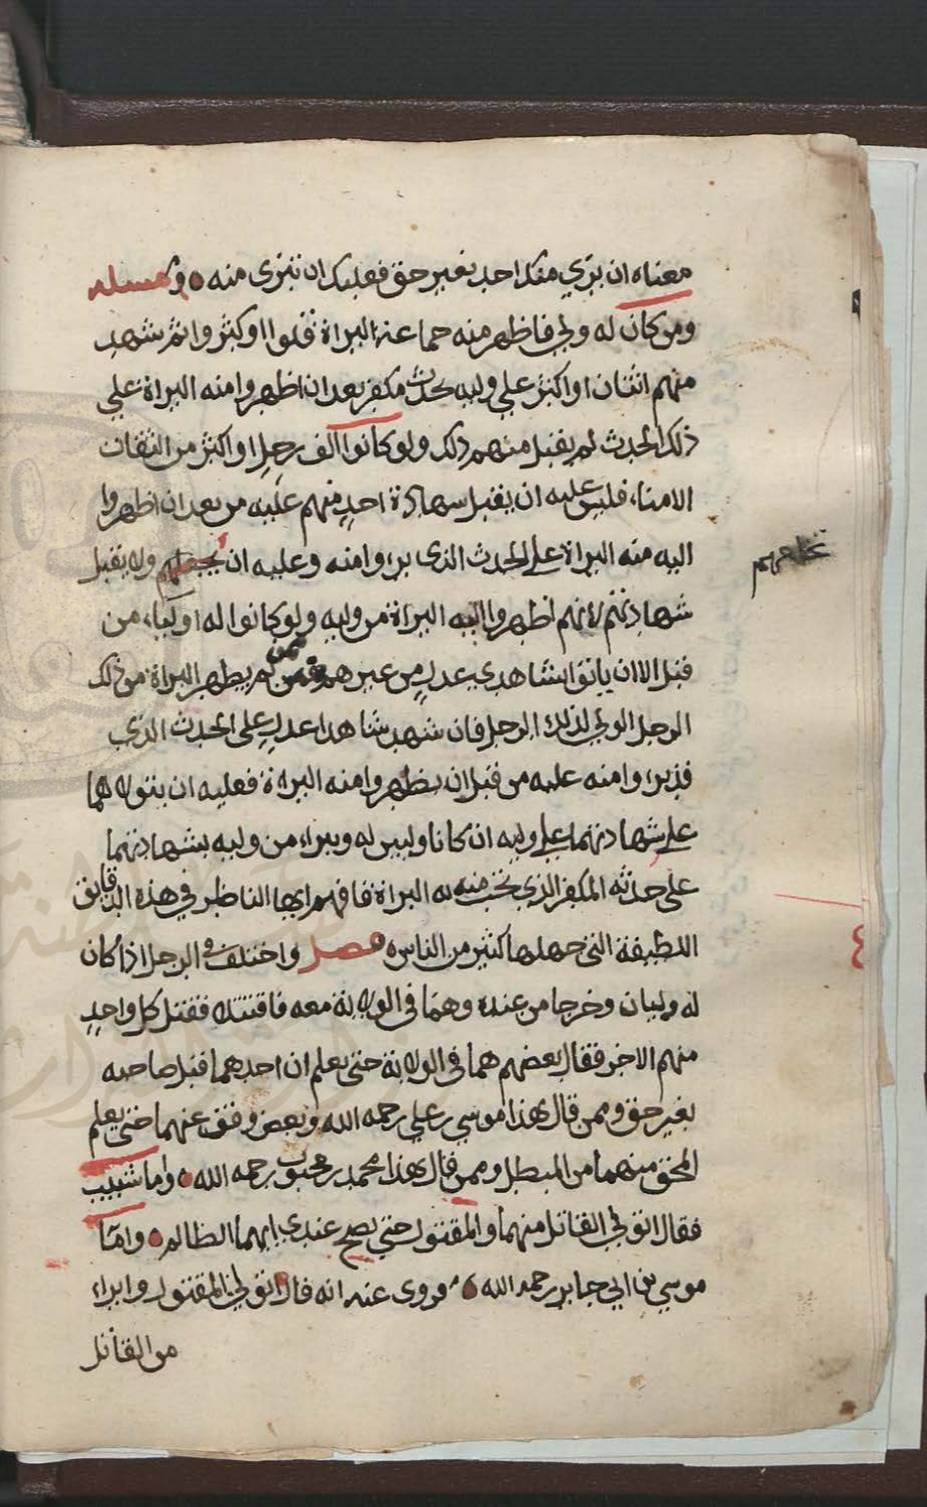 معناه ان برئ منك احد بغير حق فعليك ان تبرى منه و مسله
ومن كان له ولي فاظهر منه جماعة البراة قلوا او كثروا ثم شهد
منهم اثنان او اكثر علي وليه بحدث مكفر بعد ان اظهروا منه البراة علي
ذلك الحدث لم يقبل منهم ذلك ولو كانوا الف رجل او اكثر من الثقات
الامناء فليس عليه ان يقبل شهادة احد منهم عليه من بعد ان اظهروا
اليه منه البراة على الحدث الذي برءوا منه وعليه ان ولا يقبل
تخلعهم
شهادتهم لانهم اظهروا اليه البراة من وليه ولو كانوا له اولياء من
قبل الا ان ياتوا بشاهدي عدل من غيرهم ممن لم يظهر البراة من ذلك
الرجل الولي لذلك الرجل فان شهد شاهدا عدل على الحدث الذي
قد برءوا منه عليه من قبل ان يظهروا منه البراة فعليه ان يتولاهما
على شهادتهما علي وليه ان كانا وليين له ويبراء من وليه بشهادتهما
على حدثه المكفر الذي منه له البراة فافهم ايها الناظر في هذه الدقايق
اللطيفة التي جهلها كثير من الناس فصل واختلف في الرجل اذا كان
له وليان وخرجا من عنده وهما في الولاية معه فاقتتلا فقتل كل واحد
منهم الاخر فقال بعضهم هما في الولاية حتى يعلم ان احدهما قتل صاحبه
بغير حق وممن قال بهذا موسي بن علي رحمه الله وبعض وقف عنهما حتى يعلم
المحق منهما من المبطل وممن قال بهذا محمد بن محبوب رحمه الله واما شبيب
فقال اتولي القاتل منهما والمقتول حتي يصح عندي ايهما الظالم واما
موسي بن ابي جابر رحمه الله فروى عنه انه قال اتولى المقتول وابراء
من القاتل